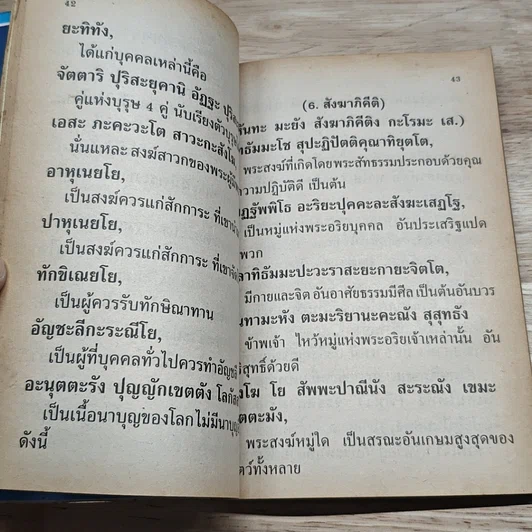 42
ยะทิทัง,
ได้แก่บุคคลเหล่านี้คือ
จัตตาริ ปุริสะยุคานิ อัฏฐะ
คู่แห่งบุรุษ 4 คู่ นับเรียงตัว
เอสะ ภะคะวะโต สาวะกะสังโฆ
นั่นแหละ สงฆ์สาวกของพระผู้
อาหุเนยโย,
เป็นสงฆ์ควรแก่สักการะ ที่เขา
ปาหุเนยโย,
เป็นสงฆ์ควรแก่สักการะ ที่เขา
ทักขิเณยโย,
เป็นผู้ควรรับทักษิณาทาน
อัญชะลีกะระณีโย,
เป็นผู้ที่บุคคลทั่วไปควรทำ
อะนุตตะรัง ปุญญักเขตตัง
เป็นเนื้อนาบุญของโลก ไม่มีนาบุญ
ดังนี้
43
(6. สังฆาภิคีติ)
มะยัง สังฆาภิคีติง กะโรมะ เส.)
สุปะฏิปัตติคุณาทิยุตโต,
พระสงฆ์ที่เกิดโดยพระสัทธรรมประกอบด้วยคุณ
ความปฏิบัติดี เป็นต้น
อะริยะปุคคะละสังฆะเสฏโฐ,
เป็นหมู่แห่งพระอริยบุคคล อันประเสริฐแปด
พวก
มีกายและจิต อันอาศัยธรรมมีศีล เป็นต้นอันบวร
ตะมะริยานะคะณัง สุสุทธัง
ข้าพเจ้า ไหว้หมู่แห่งพระอริยเจ้าเหล่านั้น อัน
สุทธิ์ด้วยดี
โย สัพพะปาณีนัง สะระณัง เขมะ
ตตะมัง,
พระสงฆ์หมู่ใด เป็นสรณะอันเกษมสูงสุดของ
ตว์ทั้งหลาย